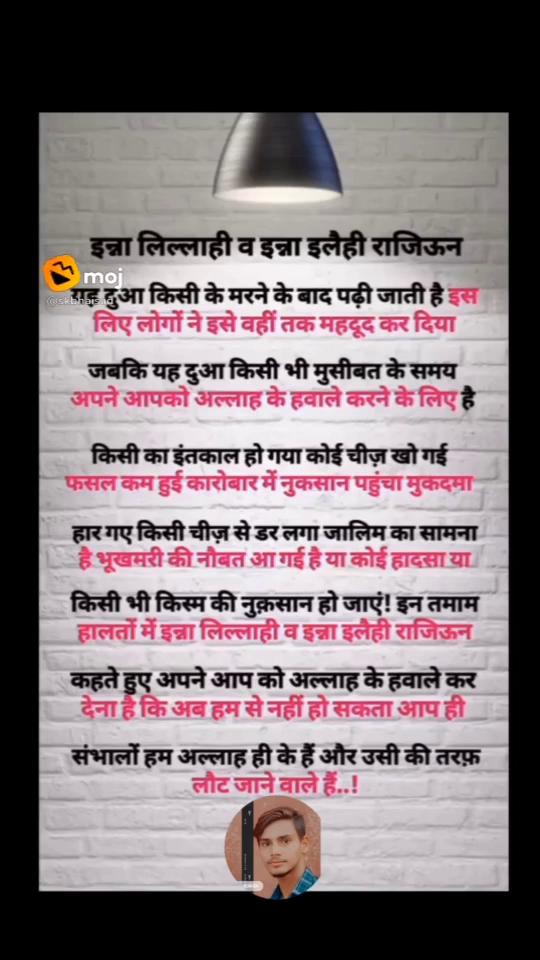 इन्ना लिल्लाही व इन्ना इलैही राजिऊन
moj
यह दुआ किसी के मरने के बाद पढ़ी जाती है इस
लिए लोगों ने इसे वहीं तक महदूद कर दिया
जबकि यह दुआ किसी भी मुसीबत के समय
अपने आपको अल्लाह के हवाले करने के लिए है
किसी का इंतकाल हो गया कोई चीज़ खो गई
फसल कम हुई कारोबार में नुकसान पहुंचा मुकदमा
हार गए किसी चीज़ से डर लगा जालिम का सामना
है भूखमरी की नौबत आ गई है या कोई हादसा या
किसी भी किस्म की नुक़सान हो जाएं! इन तमाम
हालतों में इन्ना लिल्लाही व इन्ना इलैही राजिऊन
कहते हुए अपने आप को अल्लाह के हवाले कर
देना है कि अब हम से नहीं हो सकता आप ही
संभालों हम अल्लाह ही के हैं और उसी की तरफ़
लौट जाने वाले हैं..!